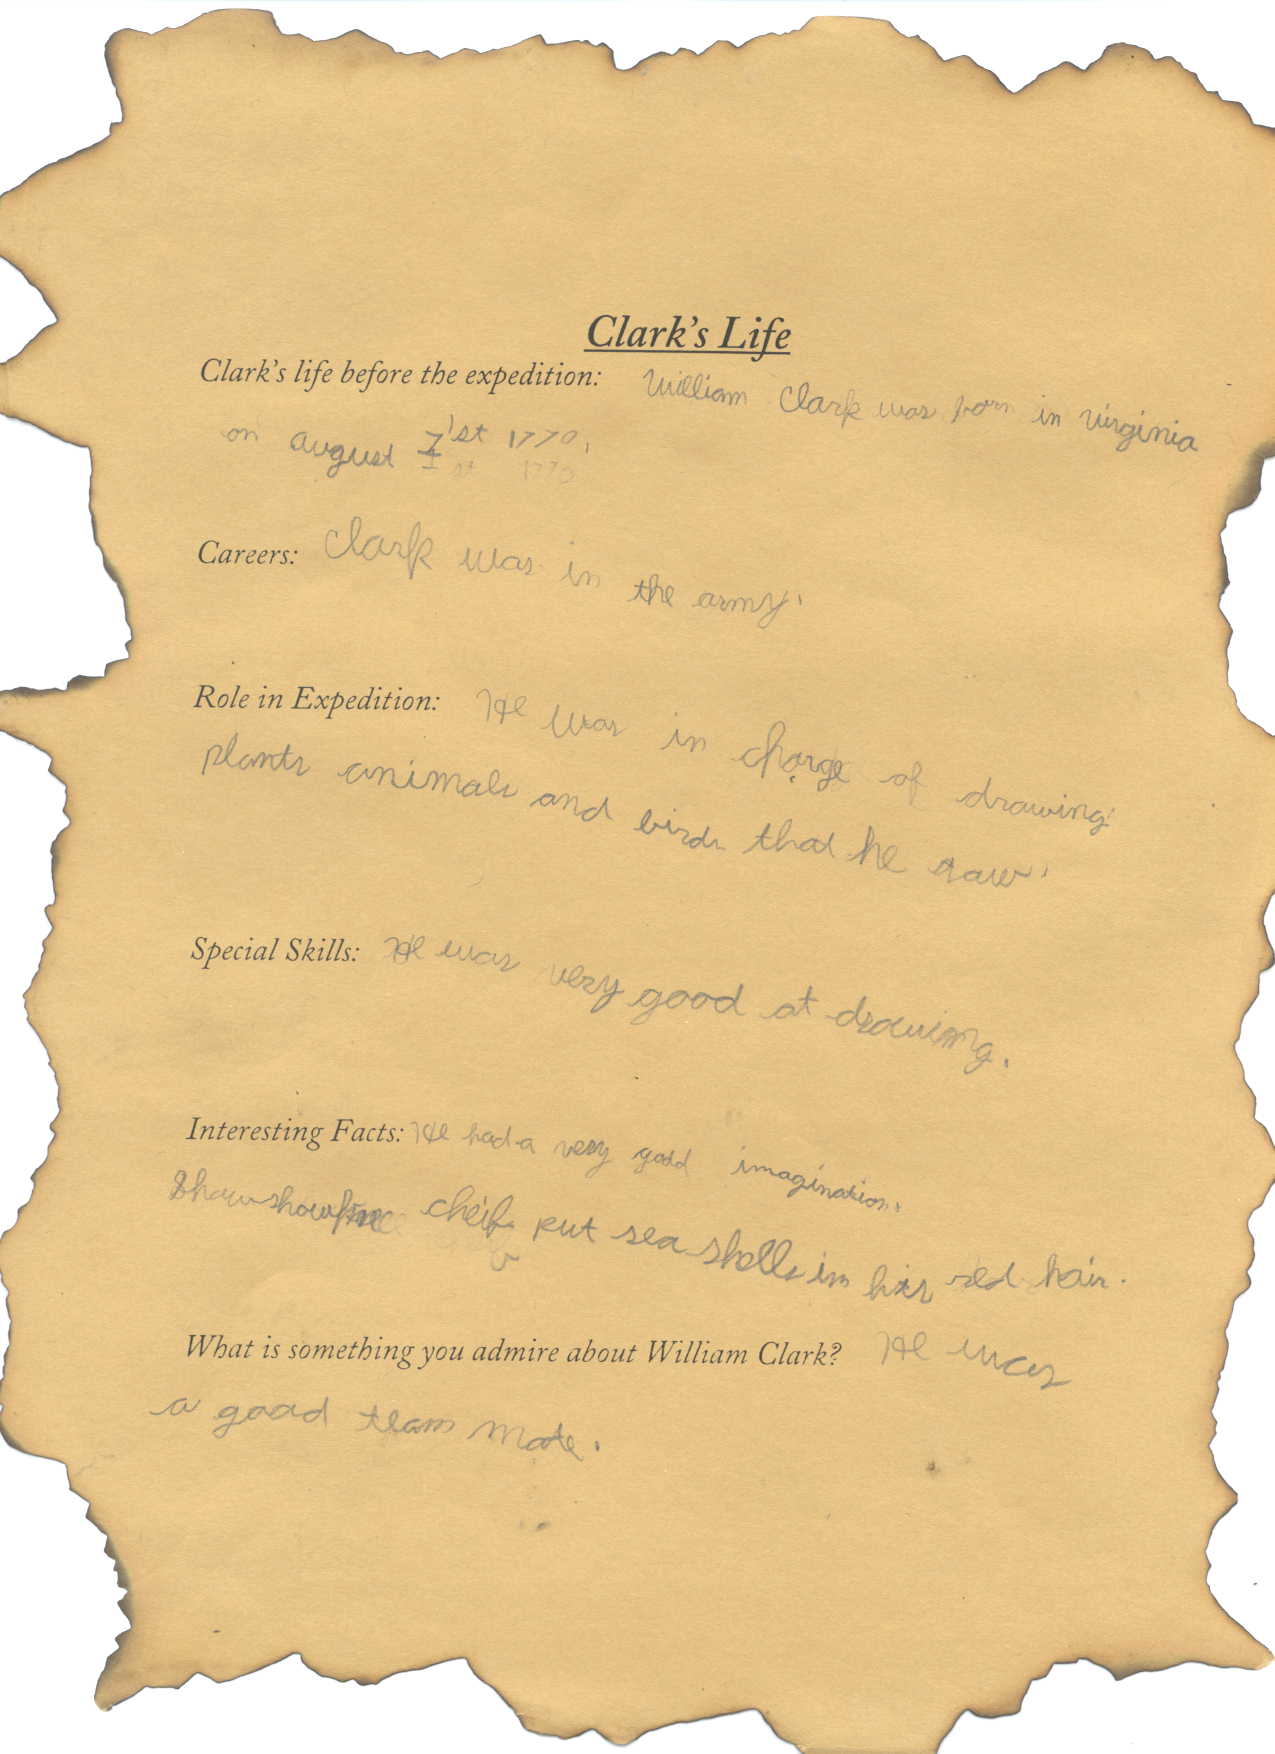 Clark's Life
Clark's life before the expedition: William Clark was born in Virginia
on august 1st 1770.
st 1770
Careers: Clark was in the army.
Role in Expedition: He was in charge of drawing
plants animals and birds that he saw.
Special Skills: He was very good at drawing.
Interesting Facts: He had a very good imagination.
cheif put sea shells in his red hair.
What is something you admire about William Clark? He was
a good team mate.